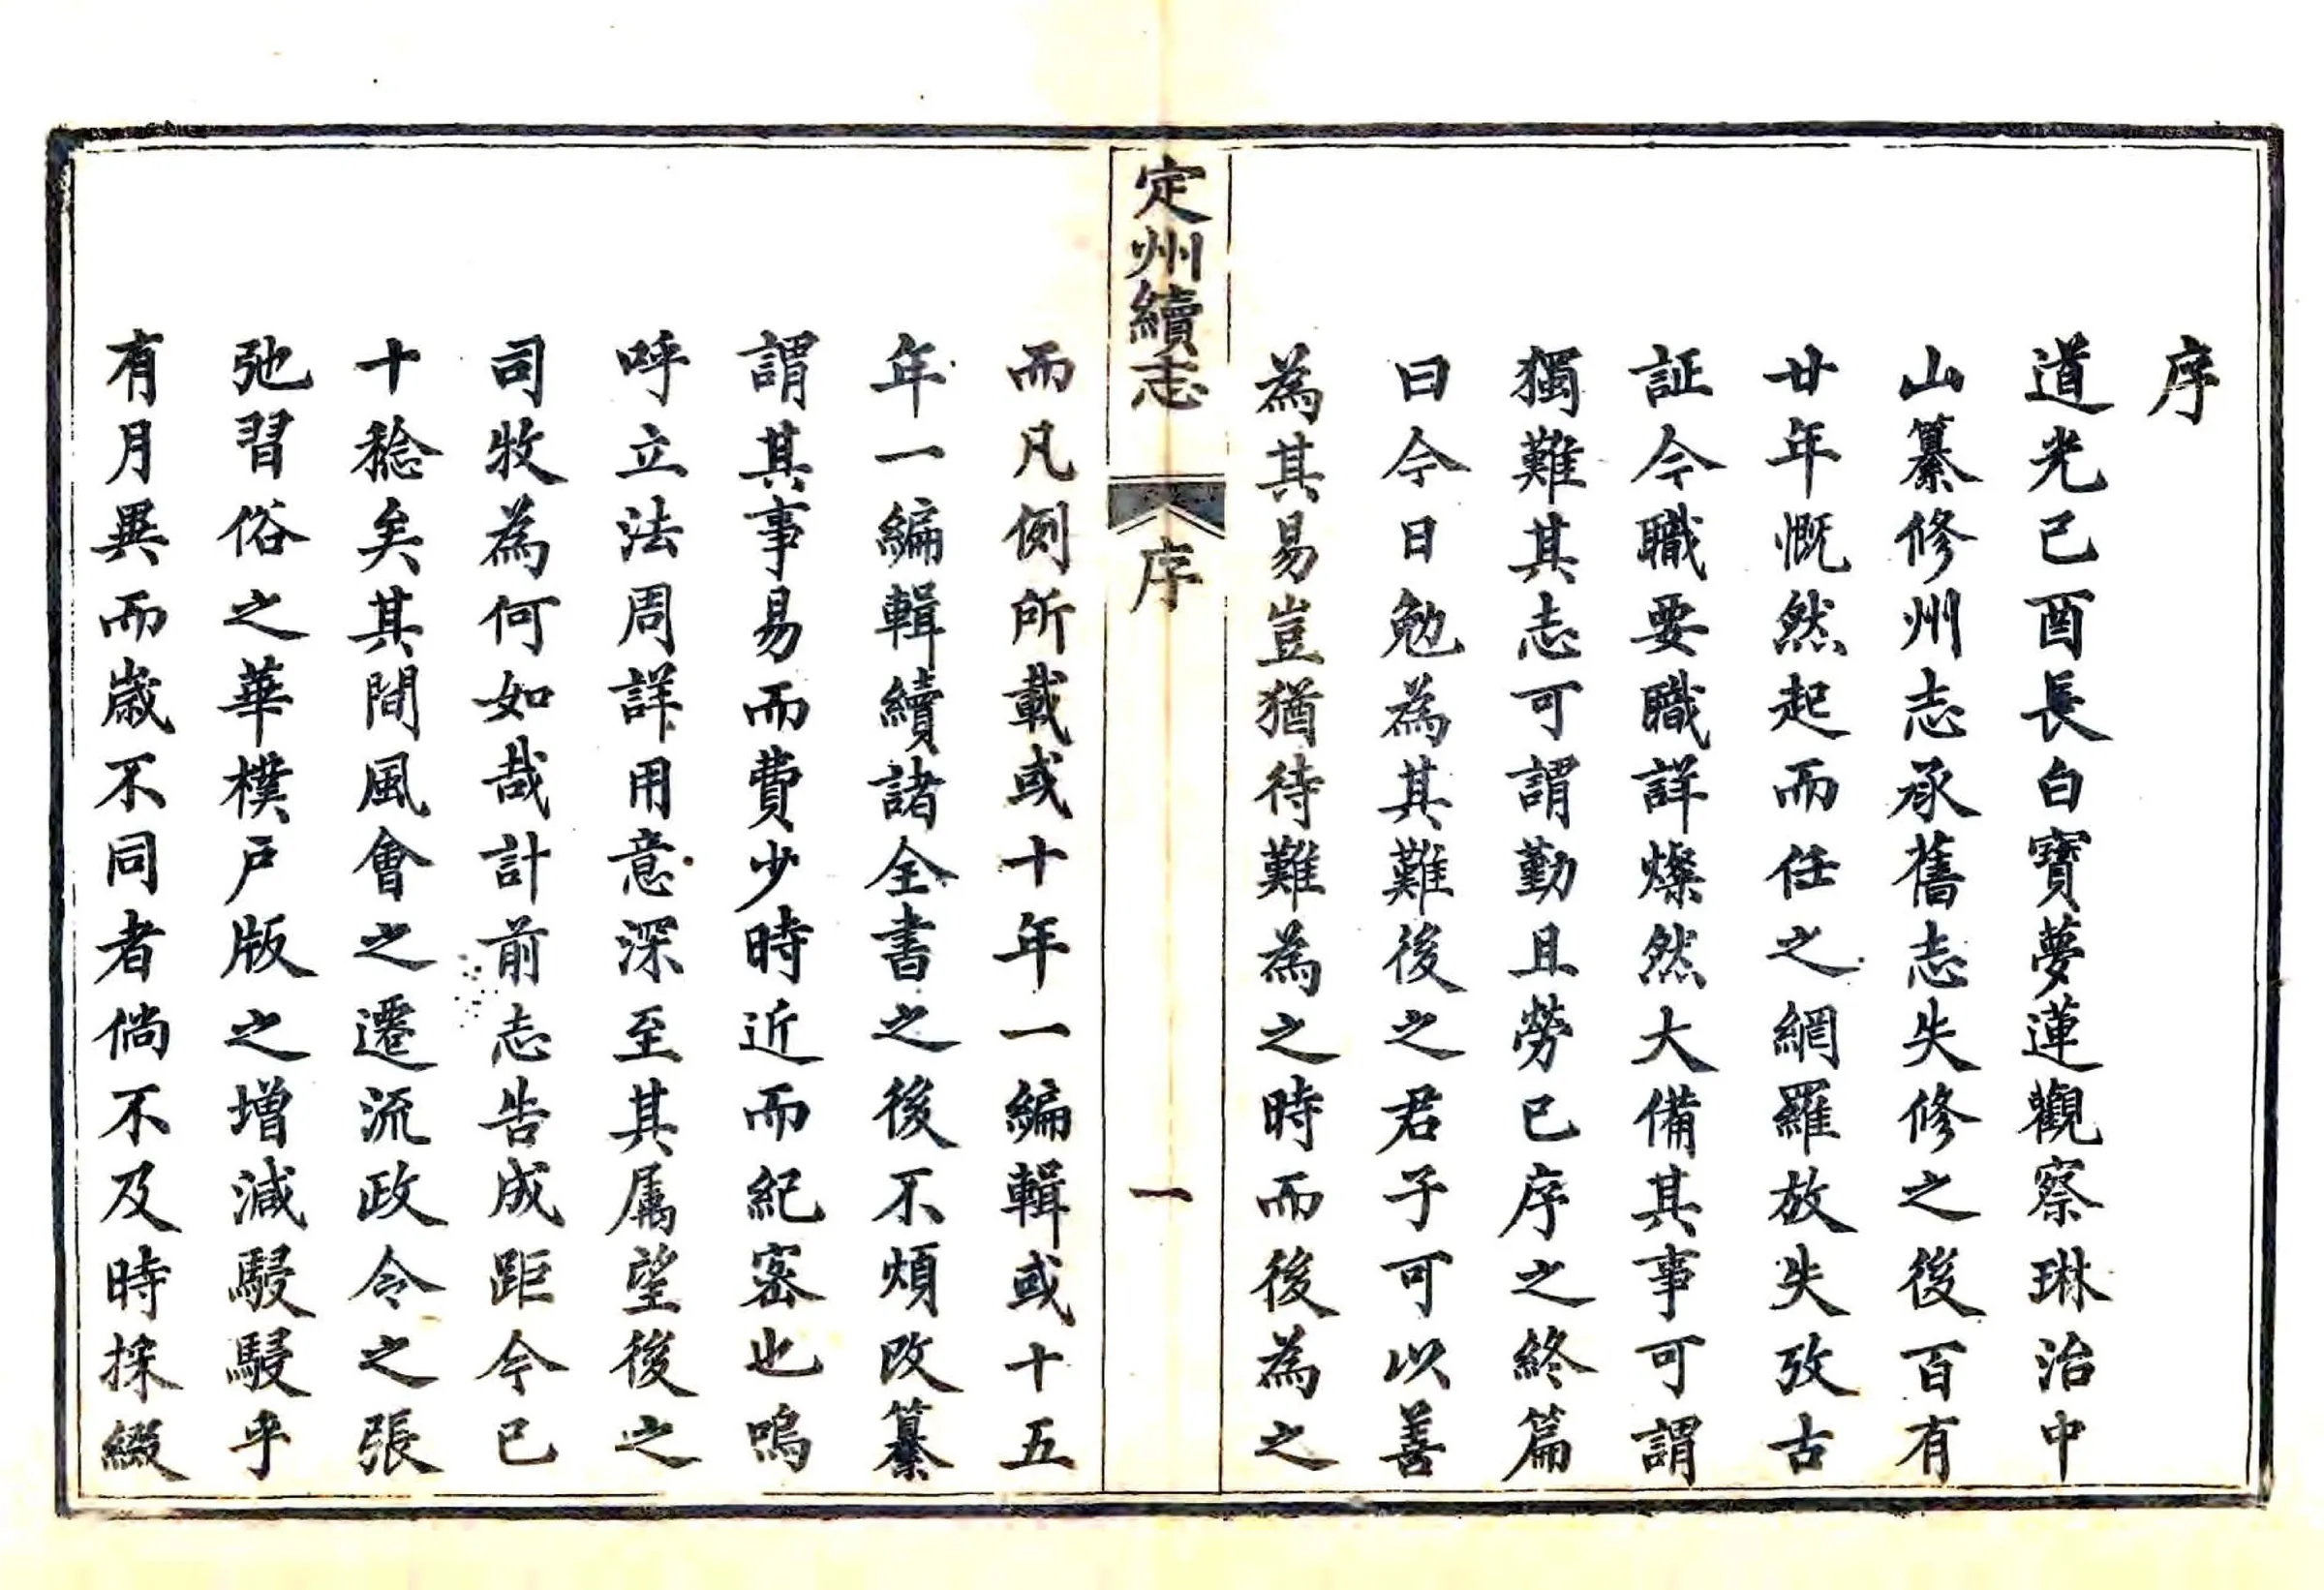 序
道光己酉長白寶夢蓮觀察琳治中
山纂修州志承舊志失修之後百有
廿年慨然起而任之網羅放失攷古
証今職要職詳燦然大備其事可謂
獨難其志可謂勤且勞已序之終篇
曰今日勉為其難後之君子可以善
為其易豈猶待難為之時而後為之
定州續志
序
一
而凡例所載或十年一編輯或十五
年一編輯續諸全書之後不煩改纂
謂其事易而費少時近而紀密也嗚
呼立法周詳用意深至其属望後之
司牧為何如哉計前志告成距今已
十稔矣其間風會之遷流政令之張
弛習俗之華樸戶版之增減駸駸乎
有月異而歲不同者倘不及時採綴